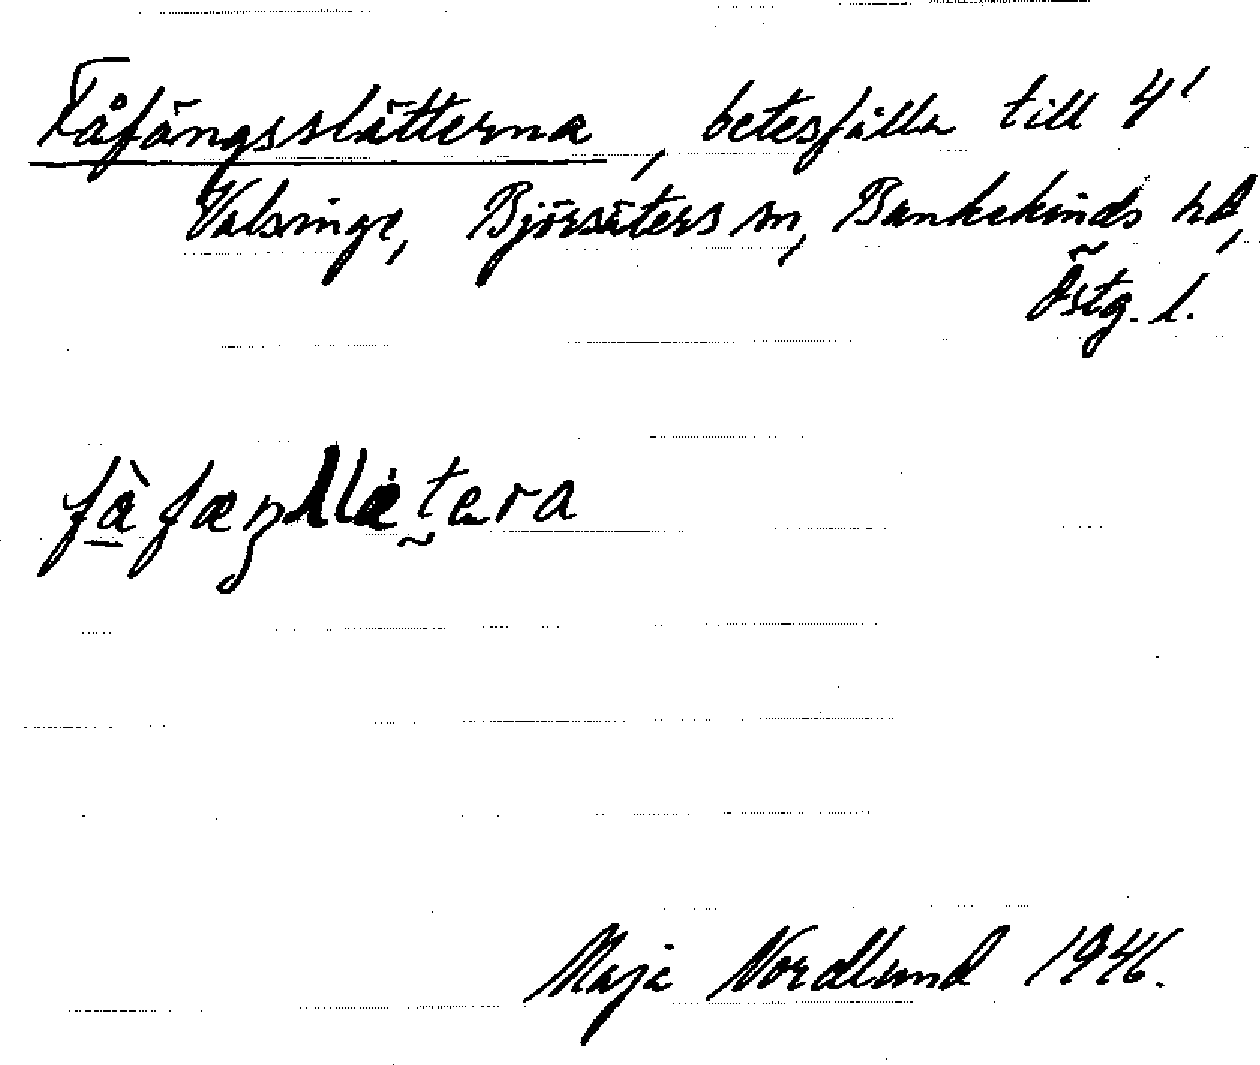 Fåfängsslätterna, betesfålla till 4'
Valsinge, Björsäters sn, Bankekinds hd,
Östg. l.
fàfæŋslætera
Maja Nordlund 1946.